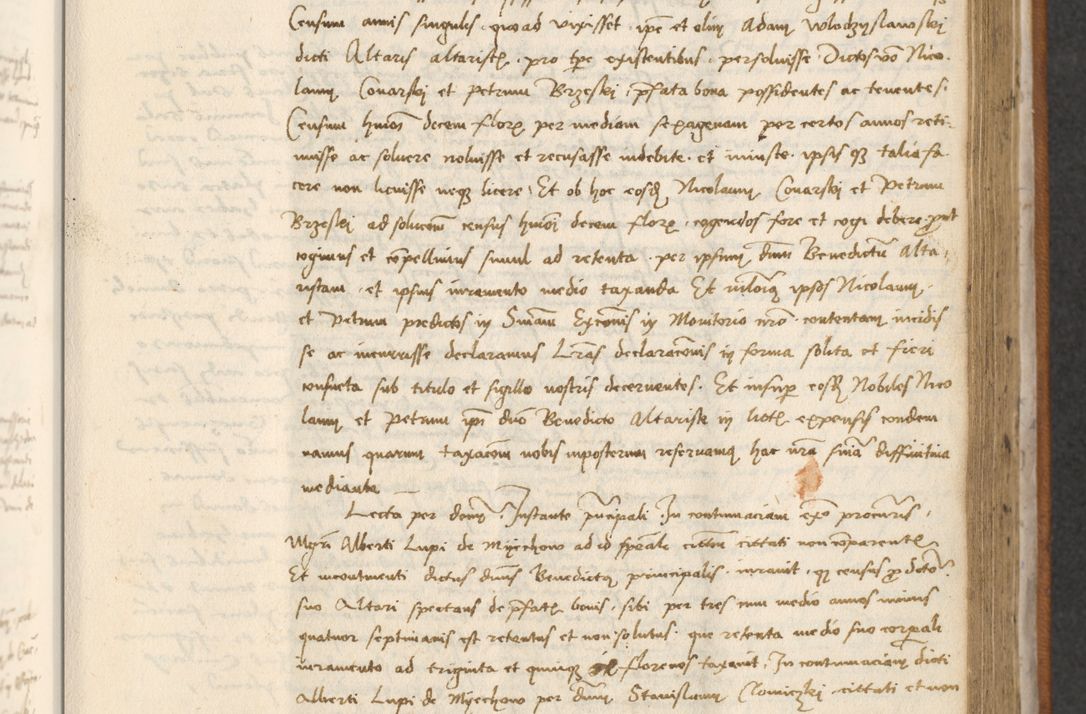 Censum annis singulis quoad vixisset ipse et olim Adam Wlodzyslawski
dicti Altaris altaristis pro tpe existentibus persoluisse Dictos vo Nico
laum Conarskj et Petrum Brzeskj pfata bona possidentes ac tenentes
Censum hmoi decem florn per mediam sexagenam per certos annos reti
nuisse ac soluere noluisse et recusasse indebite et iniuste ipsis q talia fa
cere non licuisse neqz licere Et ob hoc eosdem Nicolaum Conarskj et Petrum
Brzeskj ad solucom census hmoi decem florn cogendos fore et cogi debere put
cogimus et compellimus simul ad retenta per ipsum dnm Benedictu Alta
ristam et ipsius iuramento medio taxanda Et ipsos Nicolaum
et Petrum predictos in Sniam Excomis in Monitorio nro contentam incidis
se ac incurrisse declaramus Lras declaracomis in forma solita et fieri
consueta sub titulo et sigillo nostris decernentes Et insup eosdem Nobiles Nico
laum et Petrum ipi dno Benedicto Altariste in litis expensis condem
namus quarum taxacom nobis inposterum reservamus hac nra snia diffinitiua
mediante
Lecta per dnm Instante principali In contumaciam procuris
Mgri Alberti Lupi de Myechow ad id spealr cittati non comparentis
Et incontinenti dictus dnus Benedictus principalis iurauit q census
suo Altari spectans de pfatis bonis sibi per tres cum medio annos minus
quatuor septimanis est retentus et non solutus que retenta medio suo corpali
iuramento ad triginta et quinqz florenos taxauit In contumaciam dicti
Alberti Lupi de Myechow per dnm Stanislaum Clomiczkj cittati et non